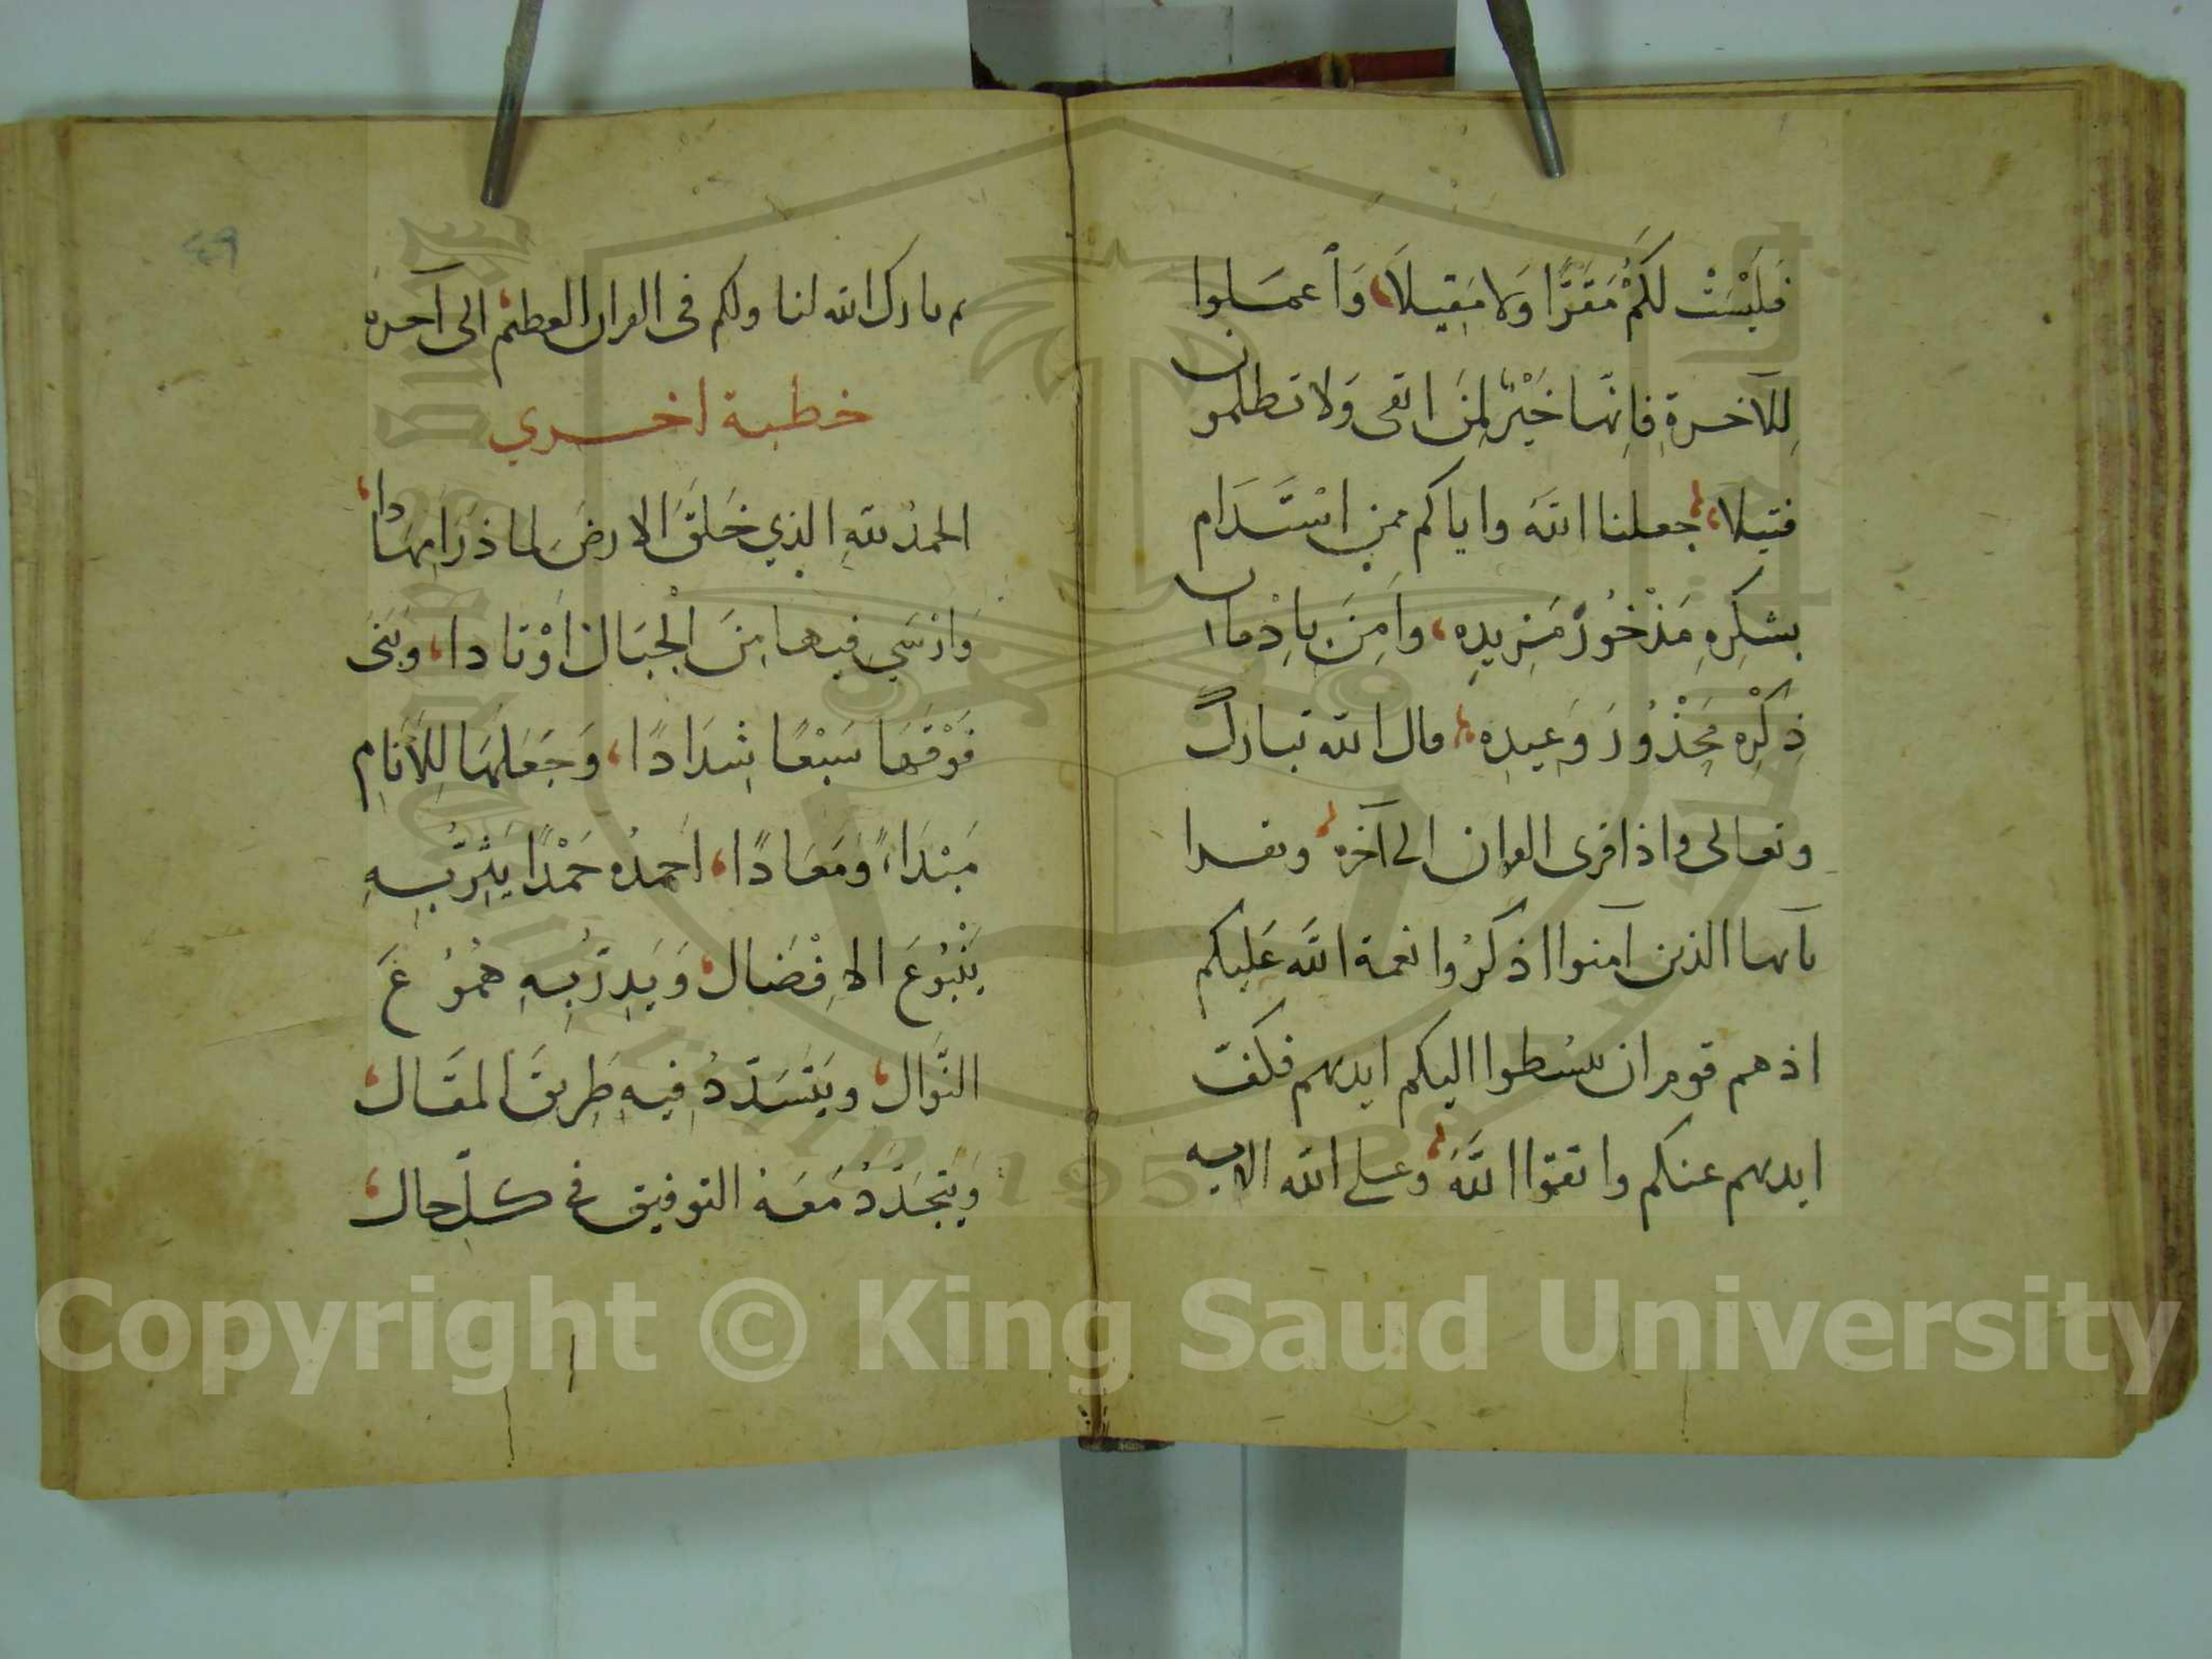 فَلَيْسَتْ لَكُمْ مَقَرًّا وَلا مَقِيلاً، وَاعملوا
لِلآخرةِ فَاِنَّها خَيْرٌ لِمَن اتقى وَلا تظلمون
فتيلا، جعلنا اللهَ واياكم ممن اسْتَدَام
بشكرِهِ مَذْخُورَ مَزِيدِه، وَاَمِنَ بِادْمان
ذِكْرِه مَحْذُورَ وَعِيدِه، قال الله تبارك
وتعالى واذا قرى القران الى آخره وتقرا
يآيها الذين آمنوا اذكرُوا نعمة اللهَ عَليكم
اذ هم قوم ان يبسُطوا اليكم ايديهم فكفّ
ايديهم عنكم واتقوا اللهَ وعلى الله الايه
٤٩
ثم بارك الله لنا ولكم فى القران العظيم الى آخره
خطبة اخرى
الحمدُ للهِ الذي خَلَقَ الارضَ لما ذَرَا مِهَادا،
وَارْسَي فيها مِنَ الْجبَال اَوْتادا، وَبَنَى
فَوْقَهَا سَبْعًا شِدَادًا، وَجَعَلَهَا لِلأنَامِ
مَبْدَاءً وَمَعَادًا، اَحمدُه حَمْدًا يَثِرُّ بِهِ
يَنْبُوعَ الاِفْضَال، وَيَدِرُّ بِهِ هُمُوعَ
النَّوَال، ويَتَسَدَّدُ فِيهِ طَرِيقَ المقَال،
وَيَتجَدَّدُ مَعَهُ التوفيق في كلِّ حال،
Copyright © King Saud University